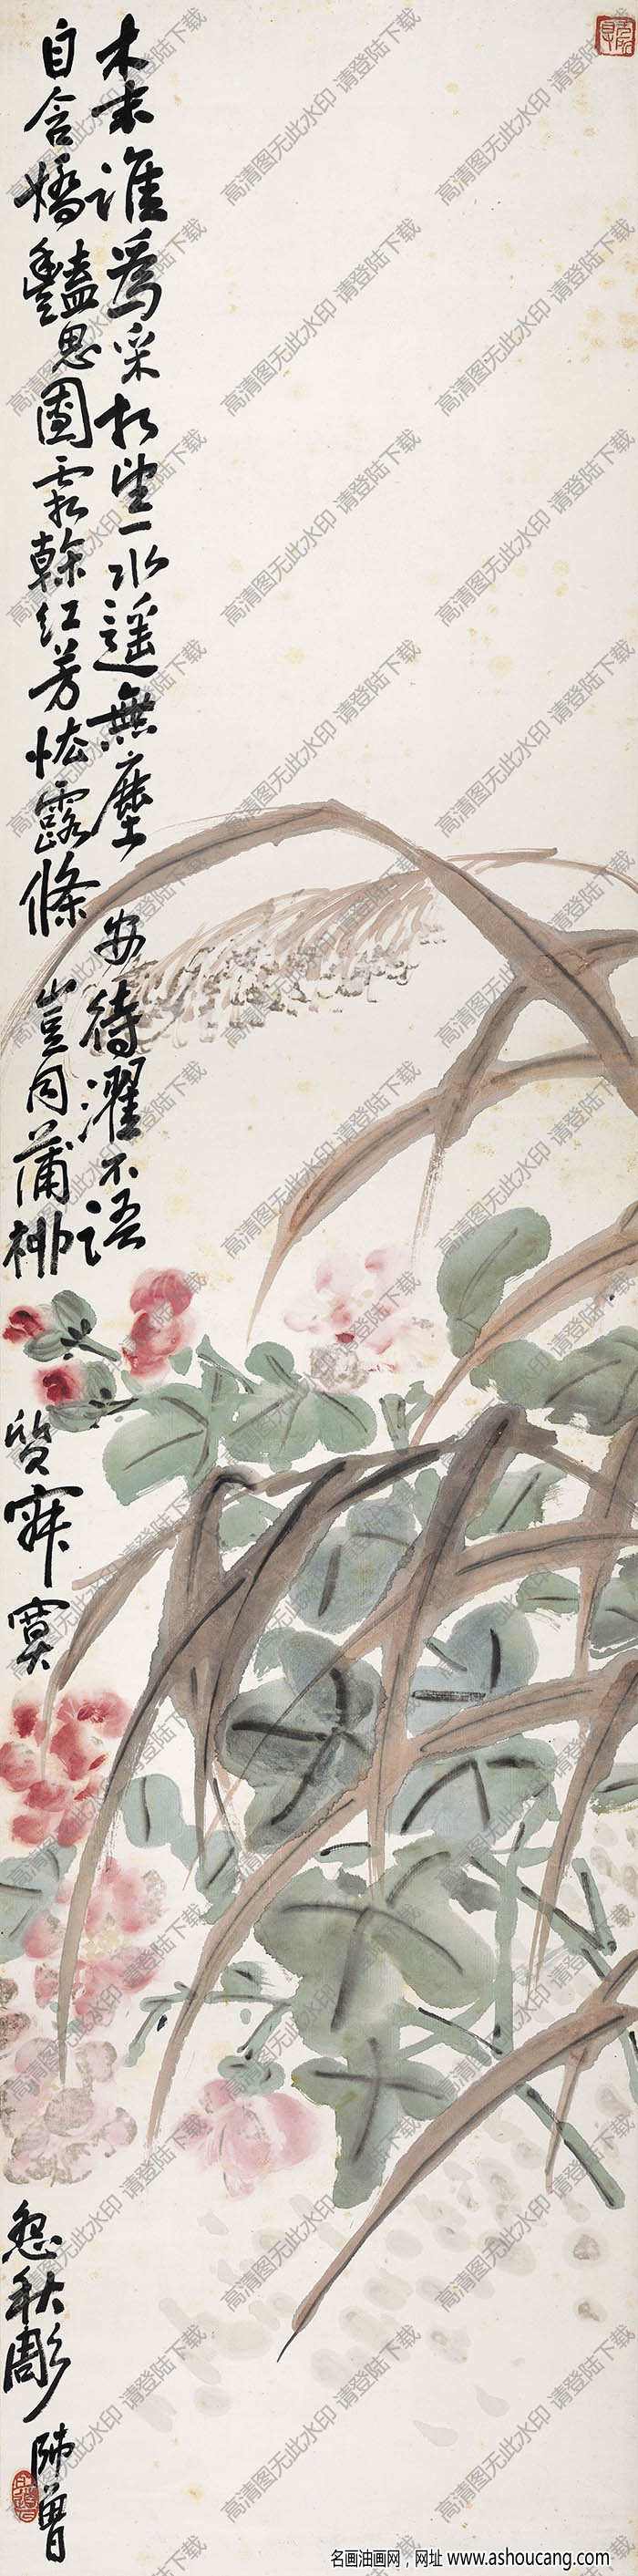 木末誰為采相望一水遥無塵安待濯不語
自含嬌豔思固霜榦紅芳怯露條豈同蒲柳質寂寞怨秋彫
師曾
高清图无此水印 请登陆下载
名画油画网，网址 www.ashoucang.com